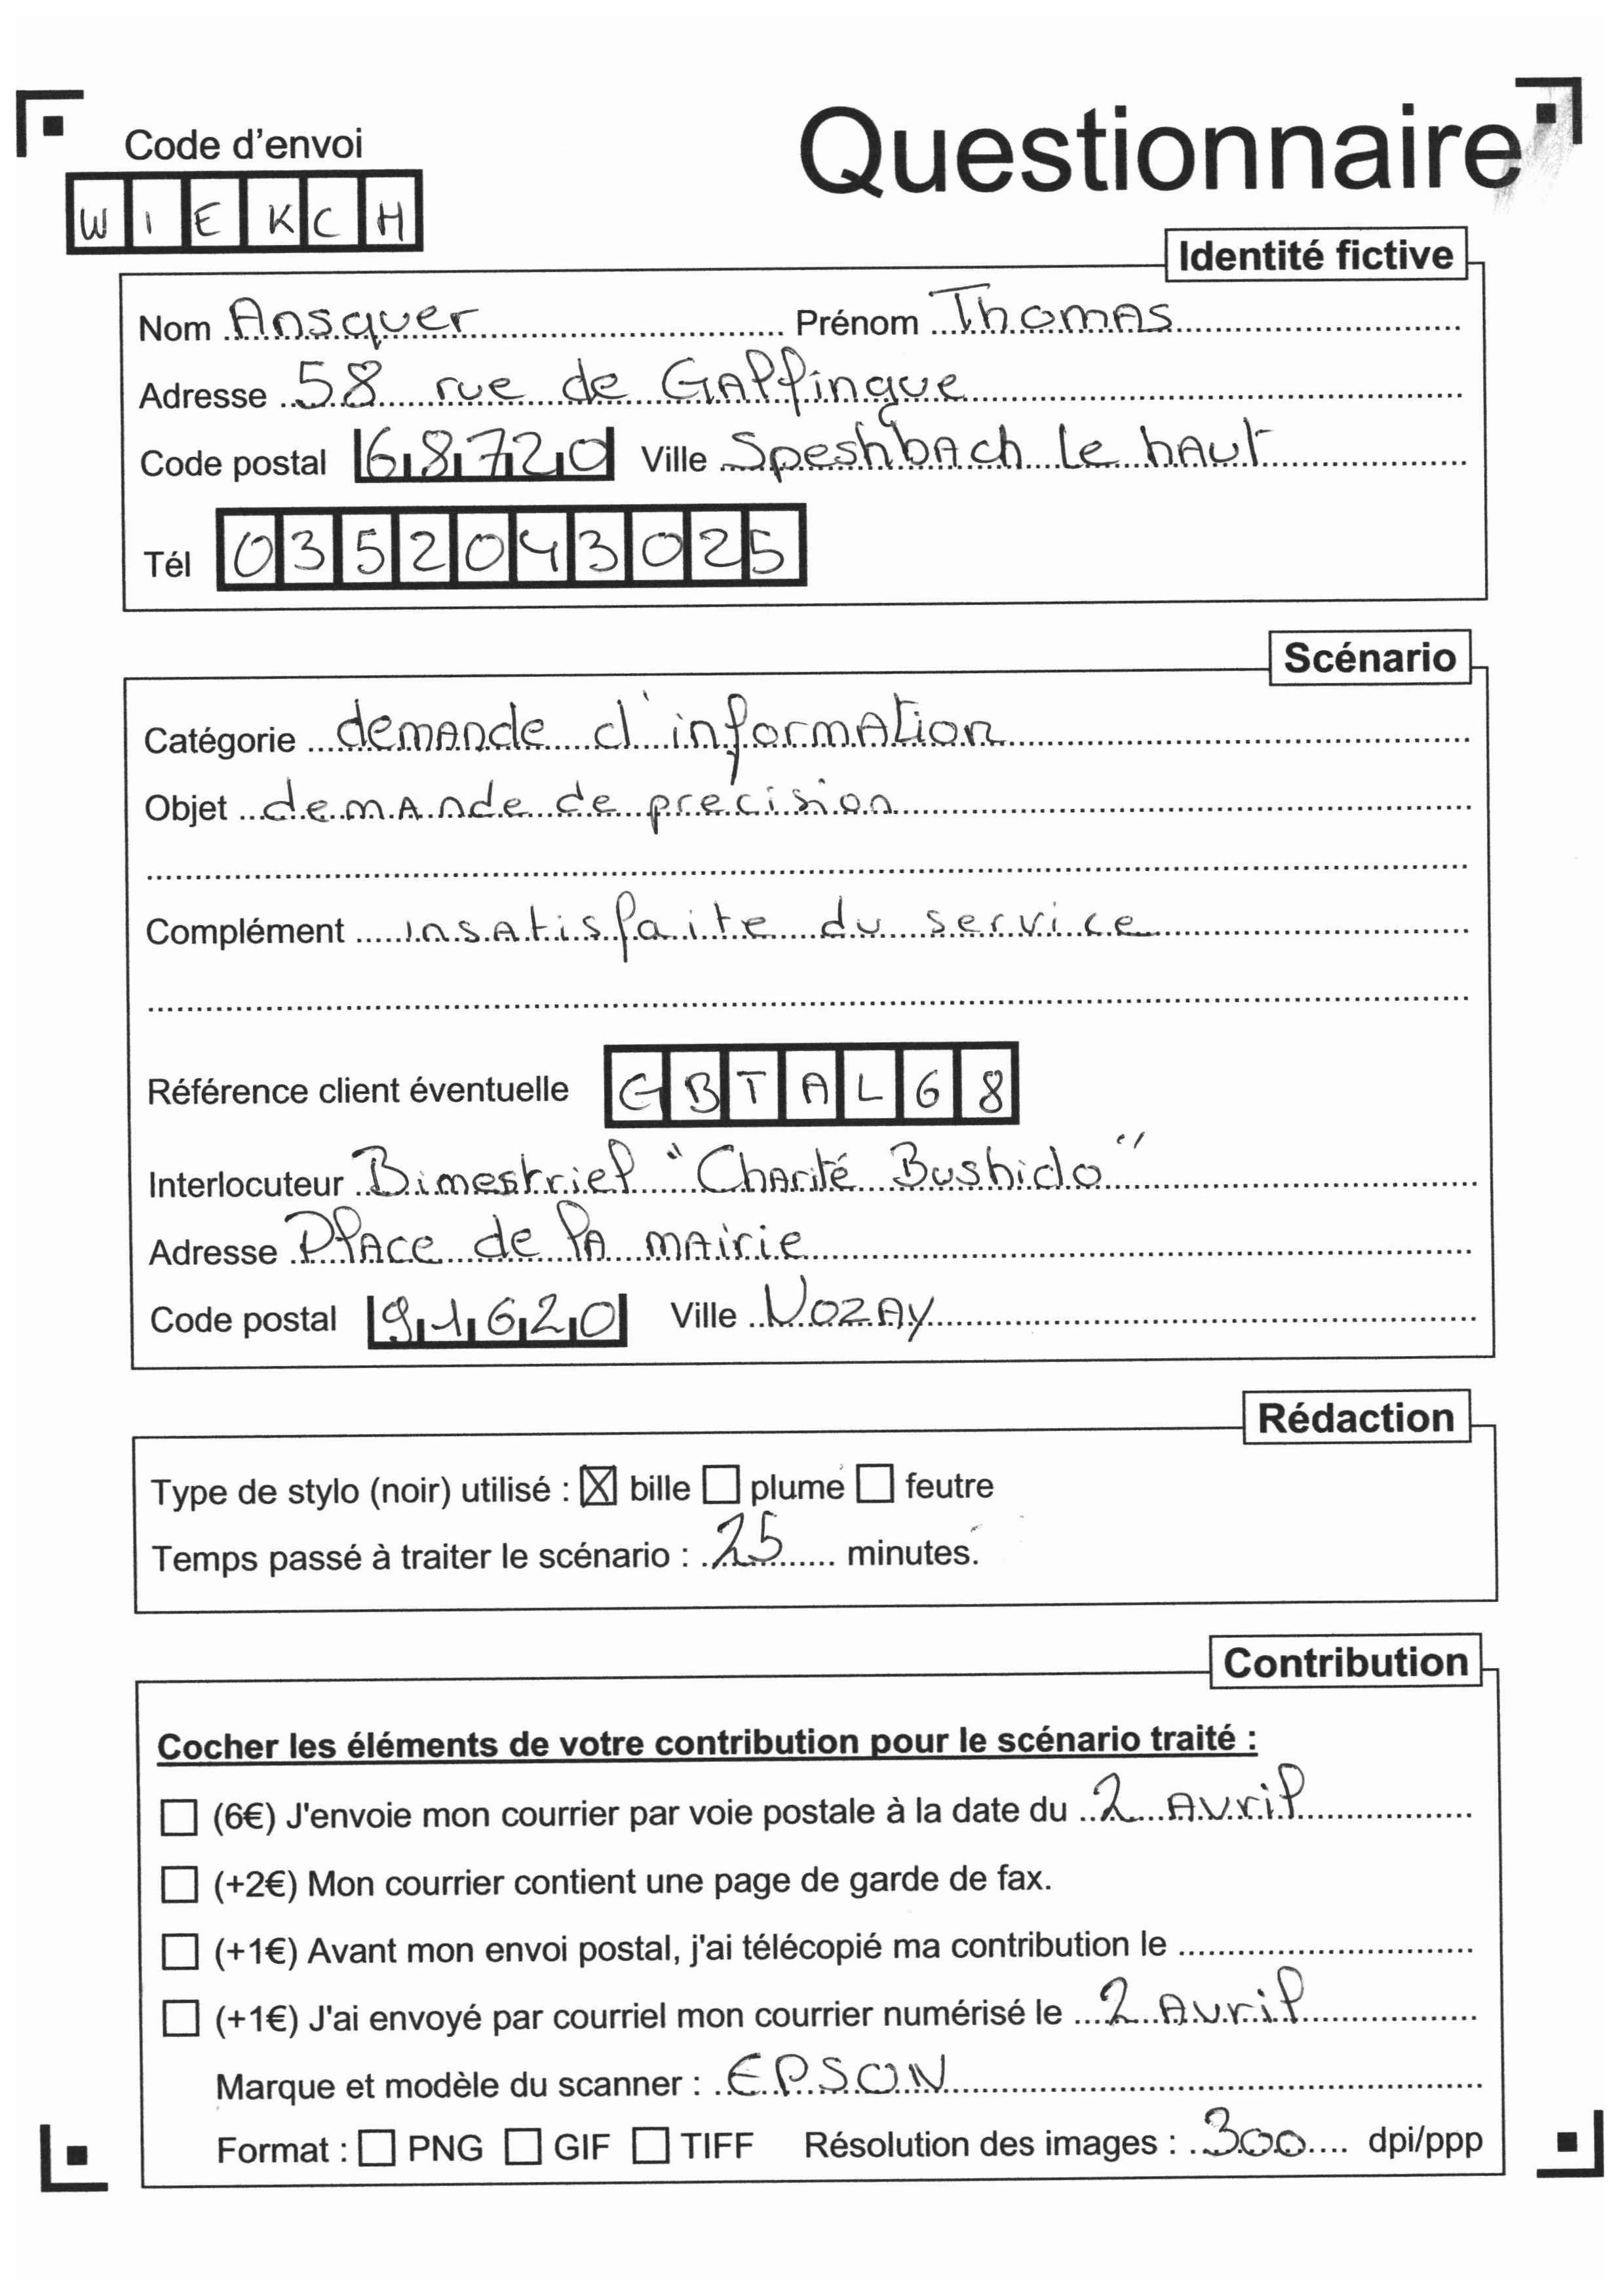 Code d'envoi
Questionnaire
WIEKCH
Identité fictive
Nom Ansquer Prénom Thomas
Adresse 58 rue de Gallfingue
Code postal 68720 Ville Speshbach le haut
Tél 0352043025
Scénario
Catégorie demande d'information
Objet demande de precision
Complément insatisfaite du service
Référence client éventuelle GBTAL68
Interlocuteur Bimestriel "Charité Bushido"
Adresse Place de la mairie
Code postal 91620 Ville Nozay
Rédaction
Type de stylo (noir) utilisé : ☒ bille ☐ plume ☐ feutre
Temps passé à traiter le scénario : 25 minutes.
Contribution
Cocher les éléments de votre contribution pour le scénario traité :
☐ (6€) J'envoie mon courrier par voie postale à la date du 2 Avril
☐ (+2€) Mon courrier contient une page de garde de fax.
☐ (+1€) Avant mon envoi postal, j'ai télécopié ma contribution le
☐ (+1€) J'ai envoyé par courriel mon courrier numérisé le 2 Avril
Marque et modèle du scanner : EPSON
Format : ☐ PNG ☐ GIF ☐ TIFF Résolution des images : 300 dpi/ppp